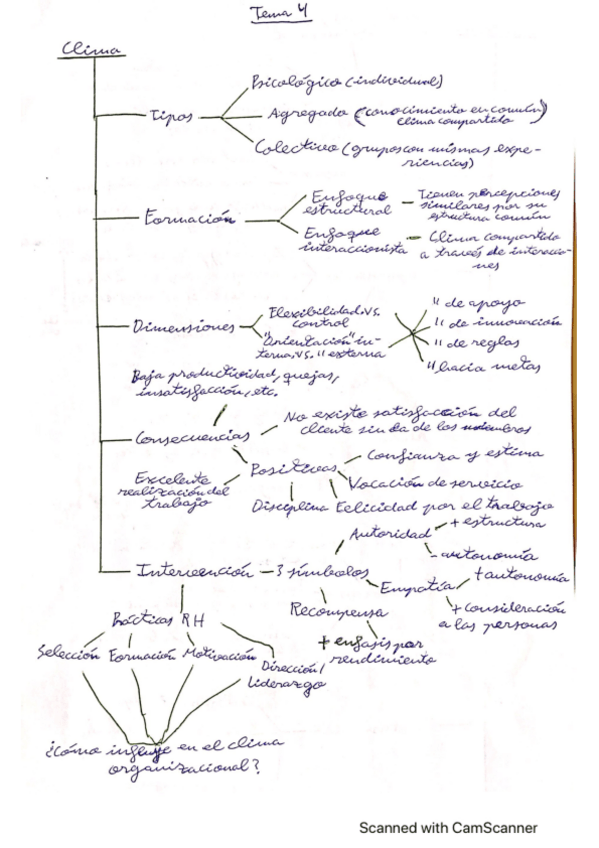 Tema 4
Clima
Psicológico (individual)
Tipos
Agregado (conocimiento en común)
clima compartido
Colectivo (grupos con mismas expe-
riencias)
Formación
Enfoque
estructural
Tienen percepciones
similares por su
estructura común
Enfoque
interaccionista
Clima compartido
a través de interaccio-
nes
Dimensiones
Flexibilidad vs.
control
"Orientación" in-
terna vs. " externa
" de apoyo
" de innovación
" de reglas
" hacia metas
Baja productividad, quejas,
insatisfacción, etc.
Consecuencias
No existe satisfacción del
cliente sin la de los miembros
Positivas
Confianza y estima
Vocación de servicio
Felicidad por el trabajo
Disciplina
Excelente
realización del
trabajo
Intervención
3 símbolos
Autoridad
+ estructura
- autonomía
Empatía
+ autonomía
+ consideración
a las personas
Recompensa
+ enfasis por
rendimiento
Prácticas RH
Selección
Formación
Motivación
Dirección/
liderazgo
¿Cómo influye en el clima
organizacional?
Scanned with CamScanner